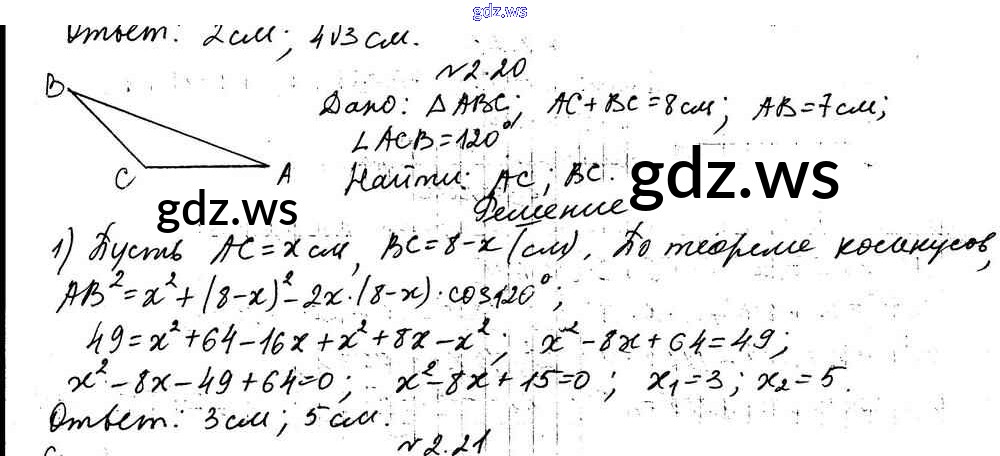 gdz.ws
Ответ: 2 см; 4√3 см.
№2.20
B
Дано: △ABC; AC+BC=8см; AB=7см;
∠ACB=120°
C A Найти: AC; BC.
gdz.ws
gdz.ws
Решение
1) Пусть AC=x см, BC=8-x (см). По теореме косинусов,
AB²=x²+(8-x)²-2x·(8-x)·cos120°;
49=x²+64-16x+x²+8x-x²; x²-8x+64=49;
x²-8x-49+64=0; x²-8x+15=0; x₁=3; x₂=5.
Ответ: 3см; 5см.
№2.21